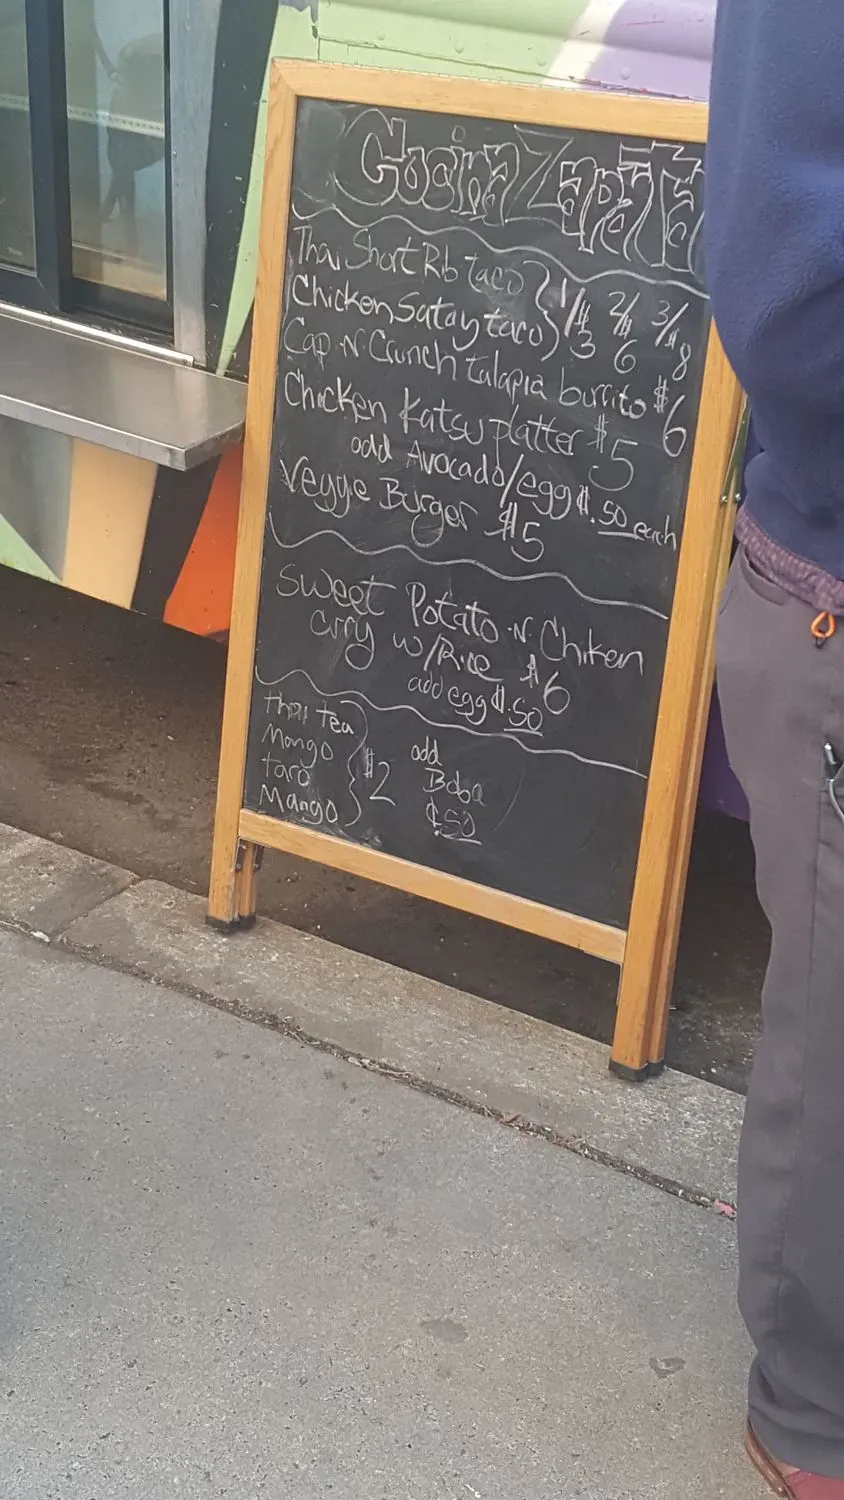 Cocina Zapata
Thai Short Rib taco } 1/$3 2/$6 3/$8
Chicken Satay taco
Cap N Crunch talapia burrito $6
Chicken Katsu platter $5
add Avocado/egg $.50 each
Veggie Burger $5
Sweet Potato N. Chiken
curry w/Rice $6
add egg $.50
thai tea
Mango
taro } $2
Mango
add
Boba
$.50